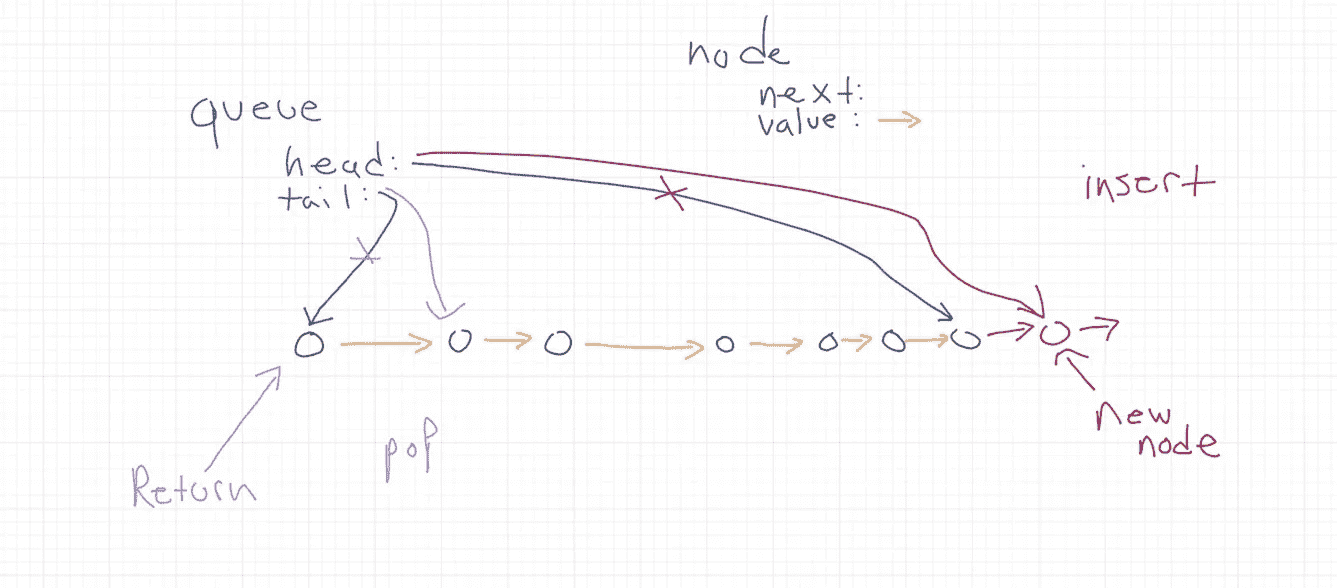 node
next:
value:
queue
head:
tail:
insert
new
node
pop
Return